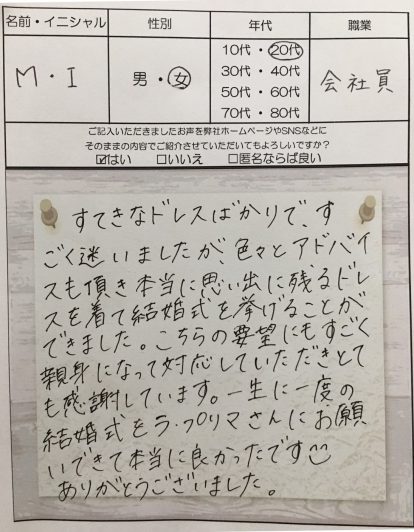 名前・イニシャル 性別 年代 職業
M・I 男・女 10代・20代 会社員
30代・40代
50代・60代
70代・80代
ご記入いただきましたお声を弊社ホームページやSNSなどに
そのままの内容でご紹介させていただいてもよろしいですか？
☑はい □いいえ □匿名ならば良い
すてきなドレスばかりで、す
ごく迷いましたが、色々とアドバイ
スも頂き本当に思い出に残るドレ
スを着て結婚式を挙げることが
できました。こちらの要望にもすごく
親身になって対応していただきとて
も感謝しています。一生に一度の
結婚式をラ・プリマさんにお願
いできて本当に良かったです
ありがとうございました。